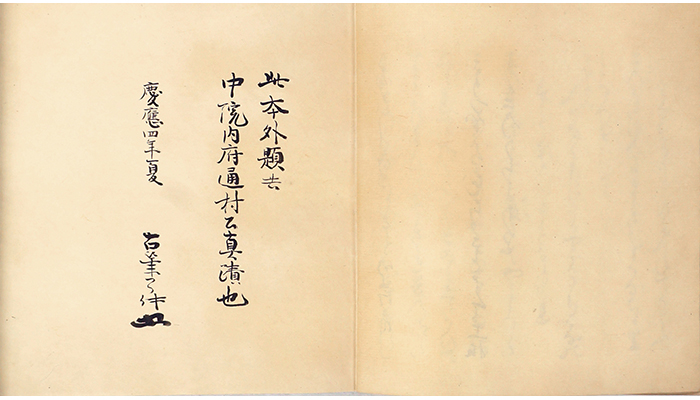 此本外題共
中院内府通村公真蹟也
慶應四年夏
古筆了仲